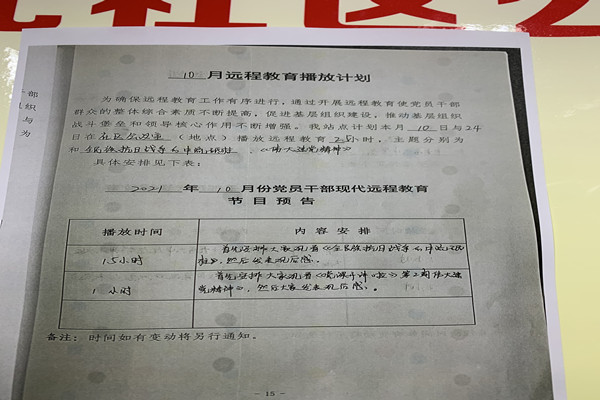 社区
部
织
与
为
10 月远程教育播放计划
为确保远程教育工作有序进行，通过开展远程教育使党员干部
群众的整体综合素质不断提高，促进基层组织建设，推动基层组织
战斗堡垒和领导核心作用不断增强。我站点计划本月 10 日与24
日在 社区会议室 （地点）播放远程教育 2.5小时，主题分别为
和 《伟大建党精神》
具体安排见下表：
2021 年 10 月份党员干部现代远程教育
节目预告
播放时间 内容安排
1.5小时 首先安排大家观看《全民族抗日战争与中流砥
柱》，然后发表观后感。
1 小时 首先安排大家观看 第2期伟大建
党精神》，然后大家发表观后感。
备注：时间如有变动将另行通知。
- 15 -